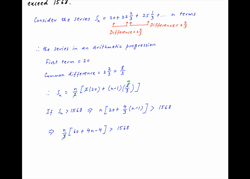 exceed 1568.
Consider the series Sₙ = 20 + 22 2/3 + 25 1/3 + ... n terms
Difference = 2 2/3 Difference = 2 2/3
∴ the series in an Arithmetic progression
First term = 20
Common difference = 2 2/3 = 8/3
∴ Sₙ = n/2 [2(20) + (n-1)(8/3)]
If Sₙ > 1568 ⇒ n[20 + 4/3 (n-1)] > 1568
⇒ n/3 [60 + 4n - 4] > 1568